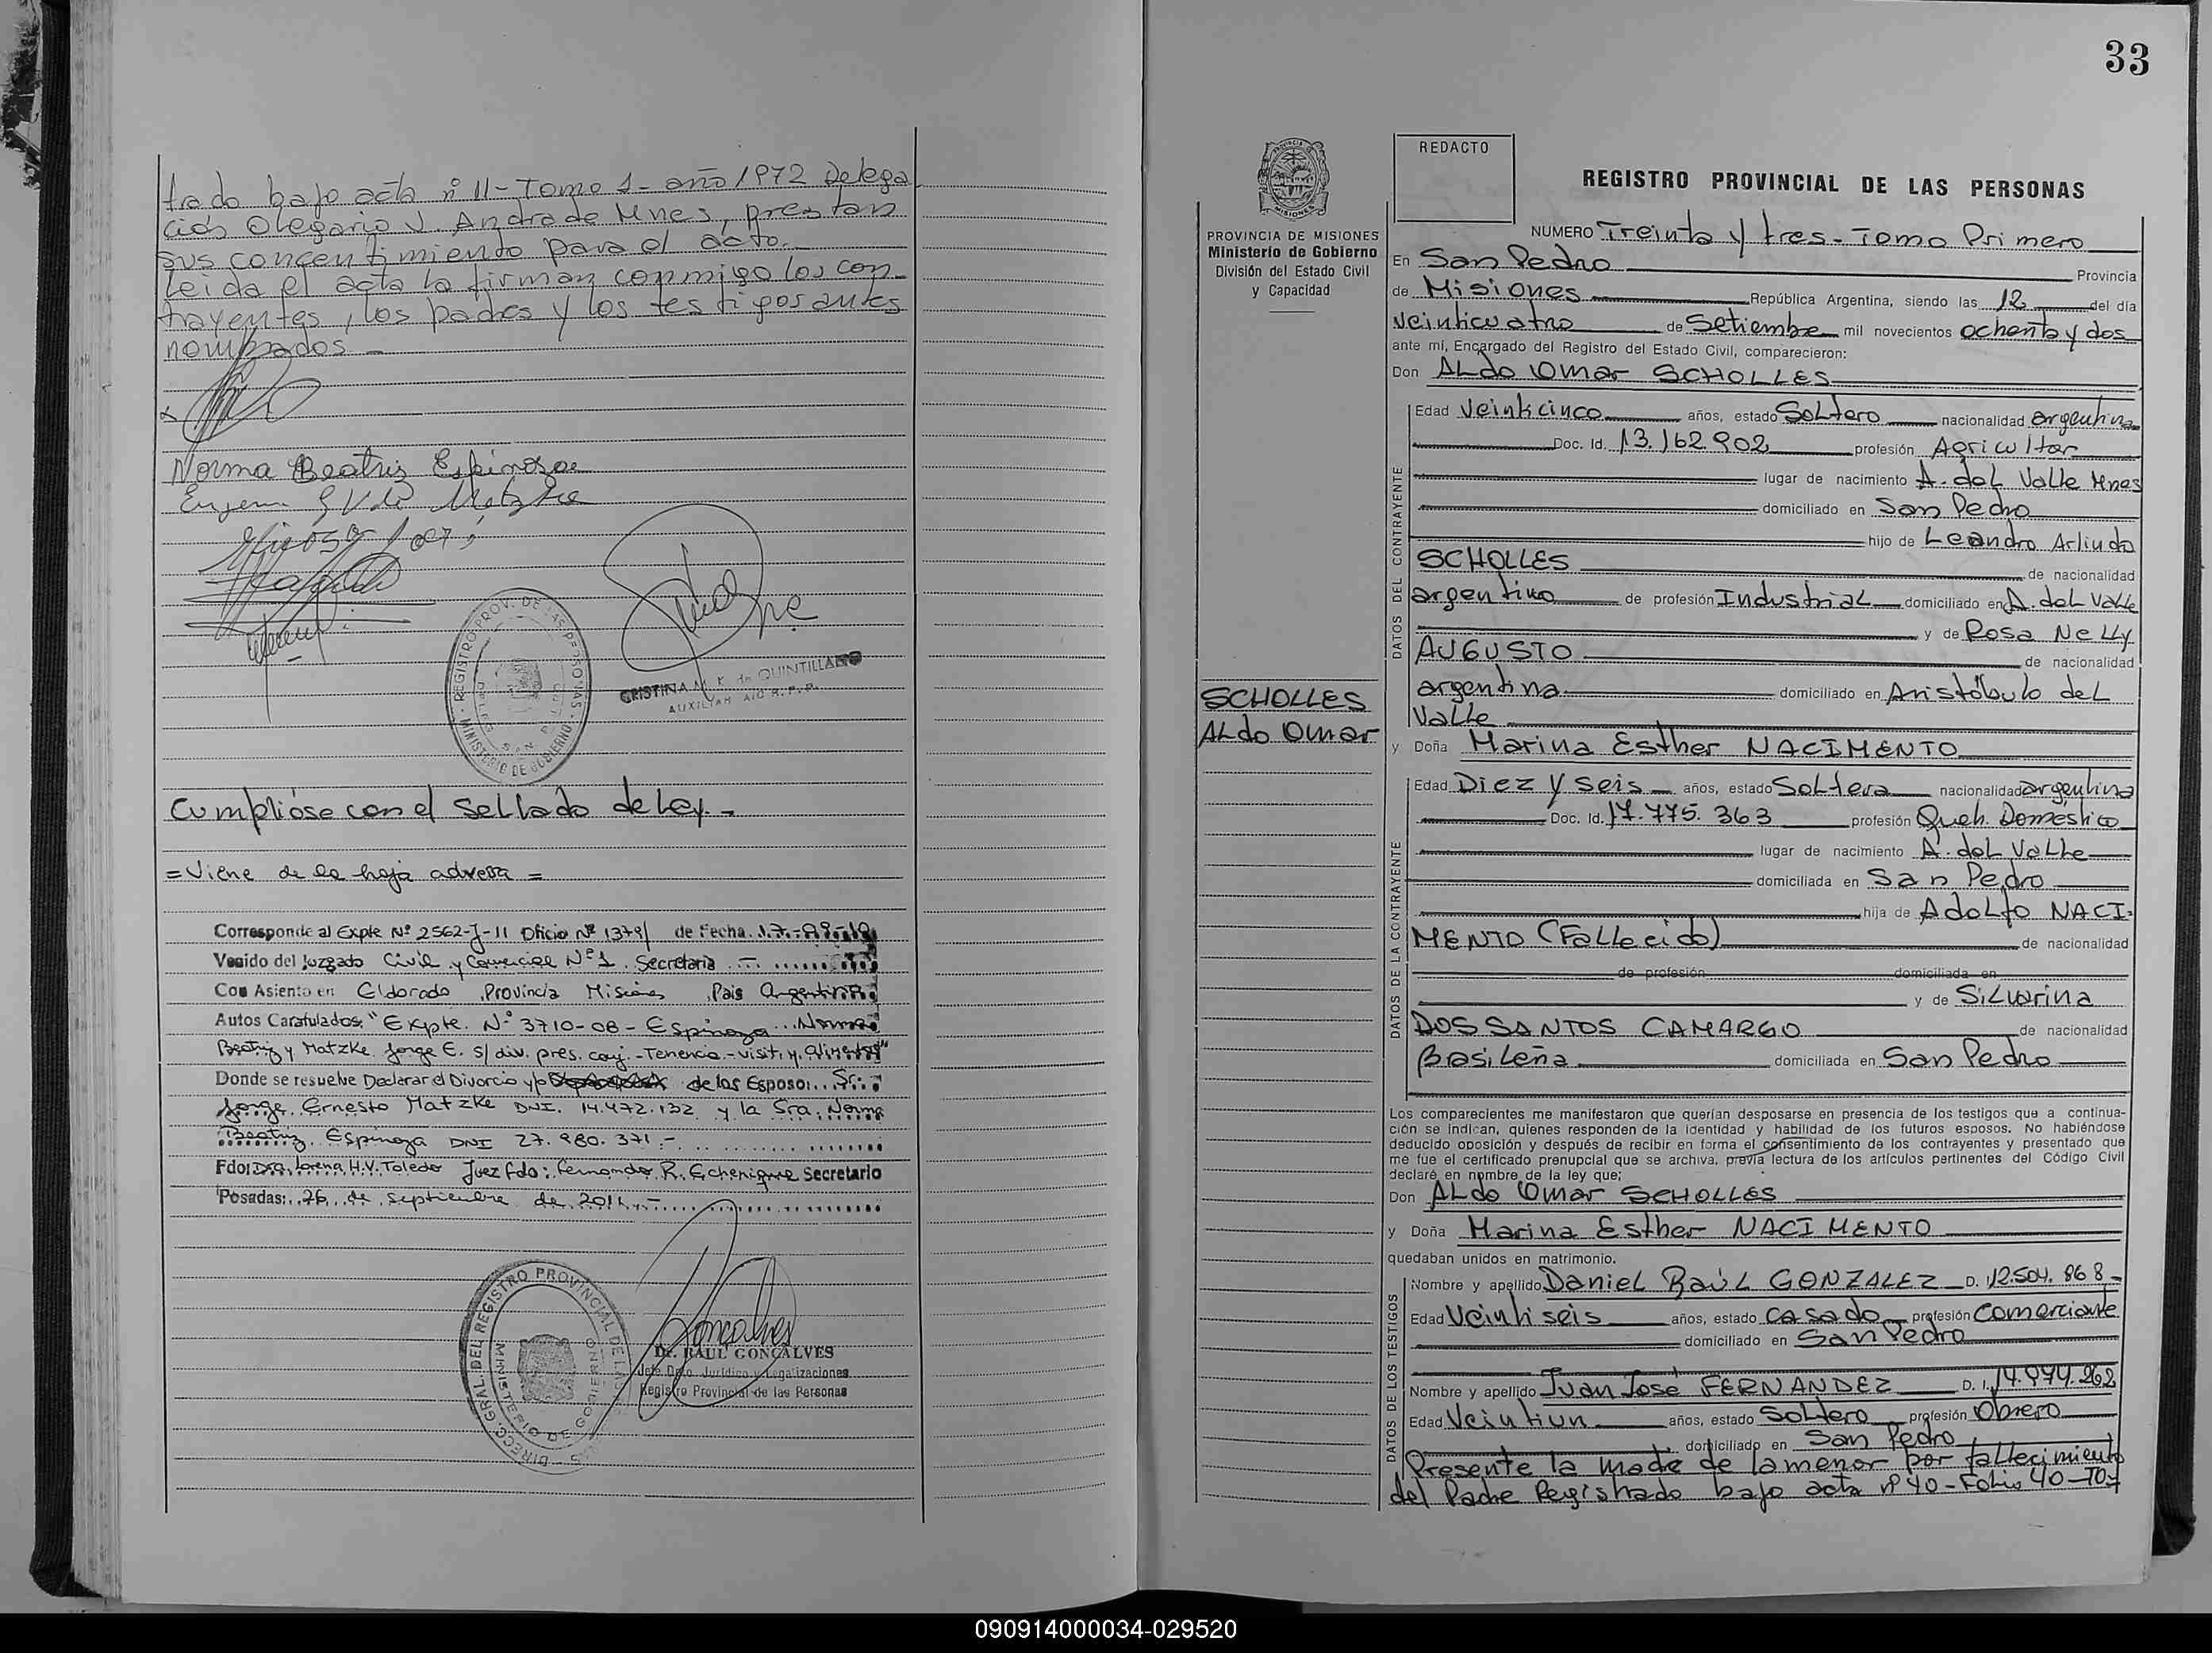 trado bajo acta nº 11 - Tomo 1 - año 1972 Delega
ción Olegario V. Andrade Mnes, prestan
sus concentimiento para el acto.
Leida el acta la firman conmigo los con-
trayentes, los padres y los testigos antes
nombrados -
Norma Beatriz Espinosa
CRISTINA M. K. de QUINTILLANO
AUXILIAR
REGISTRO PROV. DE LAS PERSONAS
MINISTERIO DE GOBIERNO
SAN PEDRO
Cumplióse con el sellado de Ley. -
= Viene de la hoja adversa =
Corresponde al Expte Nº 2562-J-11 Oficio Nº 1379/ de Fecha
Venido del Juzgado Civil y Comercial Nº 1. Secretaria
Con Asiento en Eldorado, Provincia Misiones, Pais Argentina
Autos Caratulados: "Expte. Nº 3710-08 - Espinoza Norma
Beatriz y Matzke Jorge E. s/ div. pres. conj. - Tenencia - visit. y. alimentos"
Donde se resuelve Declarar el Divorcio y/o de los Esposo: Sr.
Jorge Ernesto Matzke DNI. 14.472.132 y la Sra. Norma
Beatriz Espinoza DNI 27.980.371 -
Fdo: Dra. Lorena H.V. Toledo Juez fdo: Fernando R. Echenique Secretario
Posadas: 26 de septiembre de 2011 -
DIRECC. GRAL. DEL REGISTRO PROVINCIAL DE LAS
MINISTERIO DE GOBIERNO
Dr. RAUL GONCALVES
Jefe Dpto. Jurídico y Legalizaciones
Registro Provincial de las Personas
33
PROVINCIA DE
MISIONES
PROVINCIA DE MISIONES
Ministerio de Gobierno
División del Estado Civil
y Capacidad
SCHOLLES
Aldo Omar
REDACTO
REGISTRO PROVINCIAL DE LAS PERSONAS
NUMERO Treinta y tres - Tomo Primero
En San Pedro Provincia
de Misiones República Argentina, siendo las 12 del día
veinticuatro de Setiembre mil novecientos ochenta y dos
ante mí, Encargado del Registro del Estado Civil, comparecieron:
Don Aldo Omar SCHOLLES
DATOS DEL CONTRAYENTE
Edad Veinticinco años, estado Soltero nacionalidad argentina
Doc. Id. 13.162.902 profesión Agricultor
lugar de nacimiento A. del Valle Mnes
domiciliado en San Pedro
hijo de Leandro Arlindo
SCHOLLES de nacionalidad
argentino de profesión Industrial domiciliado en A. del Valle
y de Rosa Nelly
AUGUSTO de nacionalidad
argentina domiciliado en Aristóbulo del
Valle
y Doña Marina Esther NACIMENTO
DATOS DE LA CONTRAYENTE
Edad Diez y seis años, estado Soltera nacionalidad argentina
Doc. Id. 17.775.363 profesión Queh. Domestico
lugar de nacimiento A. del Valle
domiciliada en San Pedro
hija de Adolfo NACI-
MENTO (Fallecido) de nacionalidad
de profesión domiciliada en
y de Silvarina
DOS SANTOS CAMARGO de nacionalidad
Brasileña domiciliada en San Pedro
Los comparecientes me manifestaron que querían desposarse en presencia de los testigos que a continua-
ción se indican, quienes responden de la identidad y habilidad de los futuros esposos. No habiéndose
deducido oposición y después de recibir en forma el consentimiento de los contrayentes y presentado que
me fue el certificado prenupcial que se archiva, previa lectura de los artículos pertinentes del Código Civil
declaré en nombre de la ley que;
Don Aldo Omar SCHOLLES
y Doña Marina Esther NACIMENTO
quedaban unidos en matrimonio.
DATOS DE LOS TESTIGOS
Nombre y apellido Daniel Raúl GONZALEZ D. 12.504.868
Edad Veintiseis años, estado casado profesión comerciante
domiciliado en San Pedro
Nombre y apellido Juan José FERNANDEZ D. I. 14.974.262
Edad Veintiun años, estado Soltero profesión Obrero
domiciliado en San Pedro
Presente la madre de la menor por fallecimiento
del Padre Registrado bajo acta nº 40 - Folio 40 - Toº
090914000034-029520